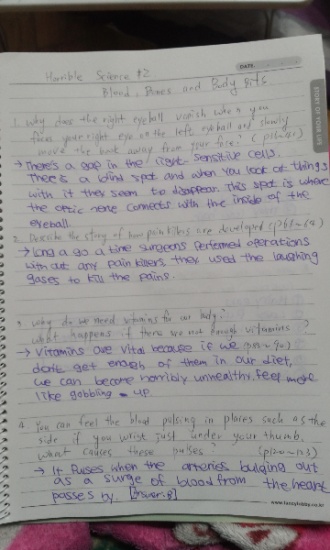 DATE
Horrible Science #2
Blood, Bones and Body bits
1. Why does the right eyeball vanish when you
focus your right eye on the left eyeball and slowly
move the book away from your face?
→ There's a gap in the light-sensitive cells.
There is a blind spot and when you look at things
with it they seem to disappear. This spot is where
the optic nerve connects with the inside of the
eyeball.
2. Describe the story of how painkillers are developed
→ Long a go a time surgeons performed operations
with out any pain killers. they used the laughing
gases to kill the pains.
3. why do we need vitamins for our body?
what happens if there are not enough vitamins?
→ Vitamins are vital because if we
don't get enough of them in our diet,
we can become horribly unhealthy. feel more
like gobbling up
4. You can feel the blood pulsing in places such as the
side if you wrist just under your thumb.
what causes these pulses? (p120~123)
→ It fuses when the arteries bulging out
as a surge of blood from the heart
passes by.
STORY OF YOUR LIFE